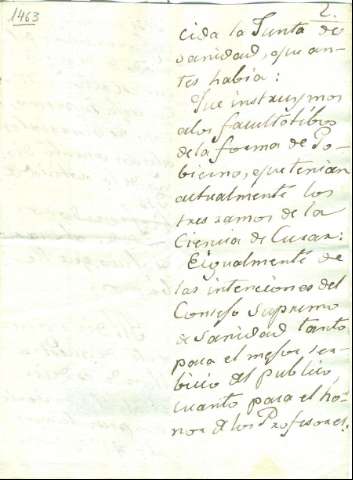 1463
2.
cida la Junta de
sanidad, que an-
tes habia:
Que instruymos
alos facultatibos
dela forma de Go-
bierno, que tenian
actualmente los
tres ramos de la
Ciencia de Curar:
Eigualmente de
las intenciones del
Consejo Supremo
de Sanidad tanto
para el mejor ser-
bicio del publico,
cuanto para el ho-
nor de los Profesores.